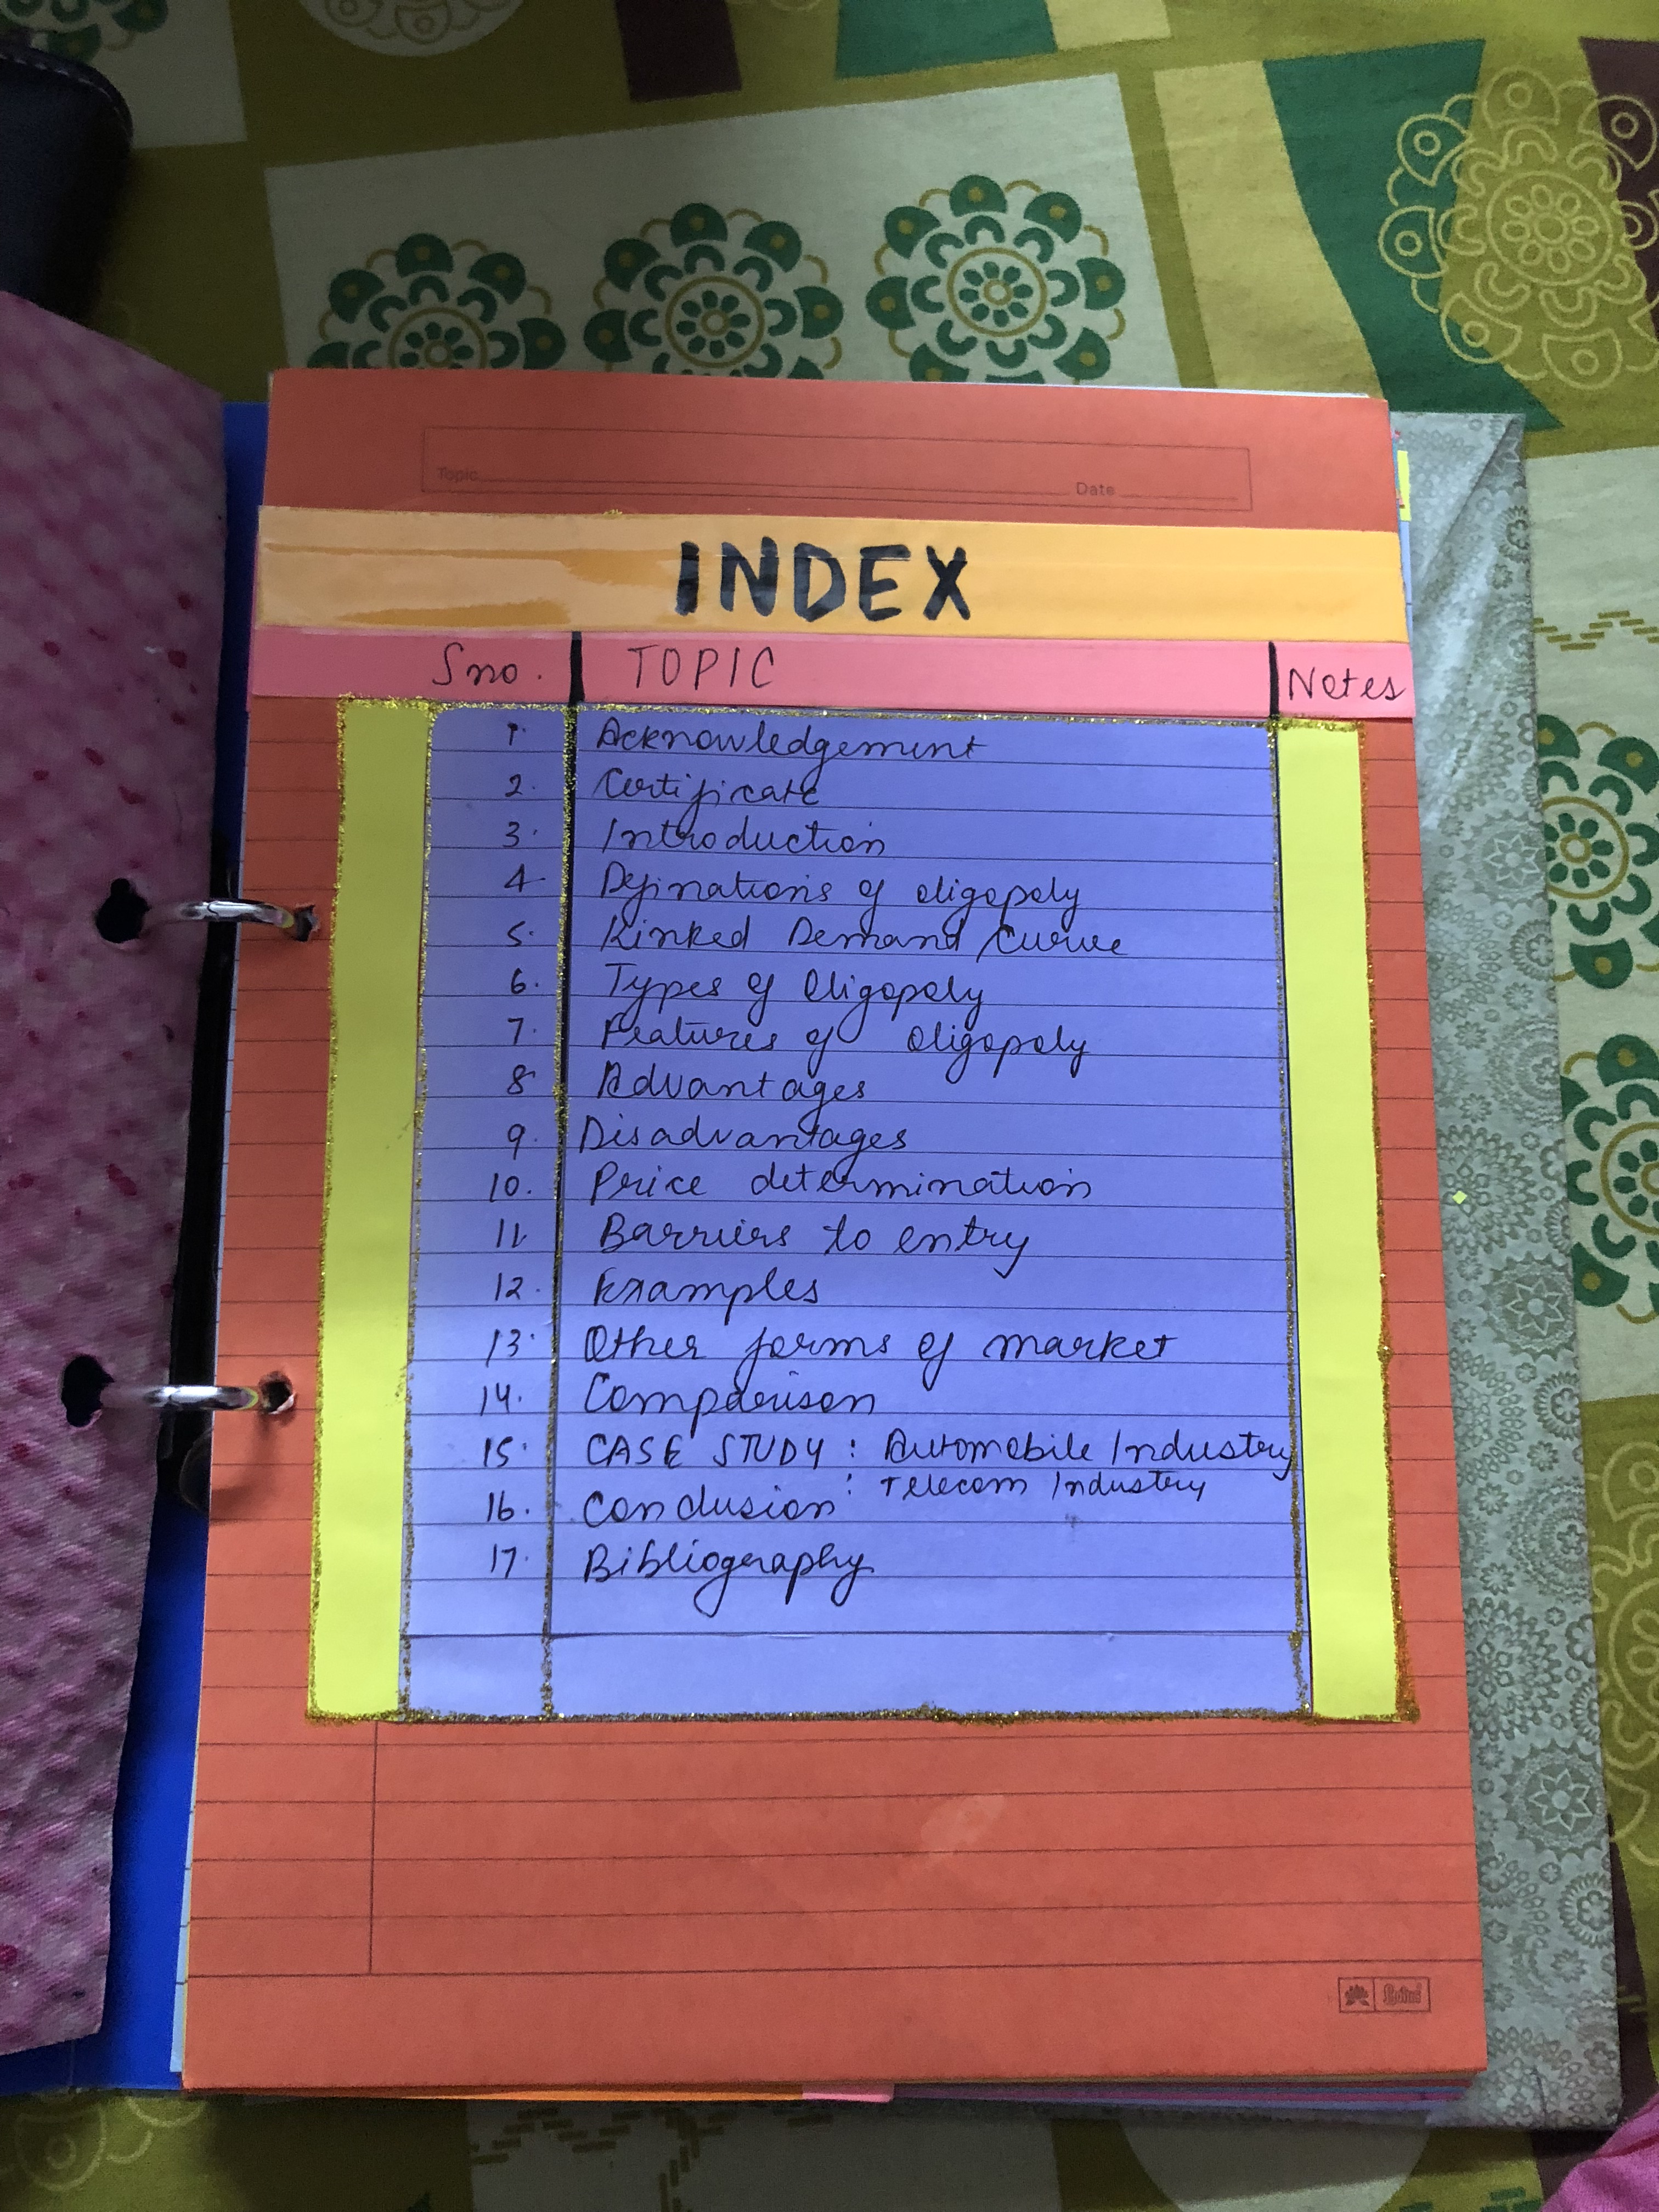 Topic
Date
INDEX
Sno. TOPIC Notes
1. Acknowledgement
2. Certificate
3. Introduction
4. Definations of oligopoly
5. Kinked Demand Curve
6. Types of Oligopoly
7. Features of Oligopoly
8. Advantages
9. Disadvantages
10. Price determination
11. Barriers to entry
12. Examples
13. Other forms of market
14. Comparison
15. CASE STUDY : Automobile Industry
: Telecom Industry
16. Conclusion
17. Bibliography